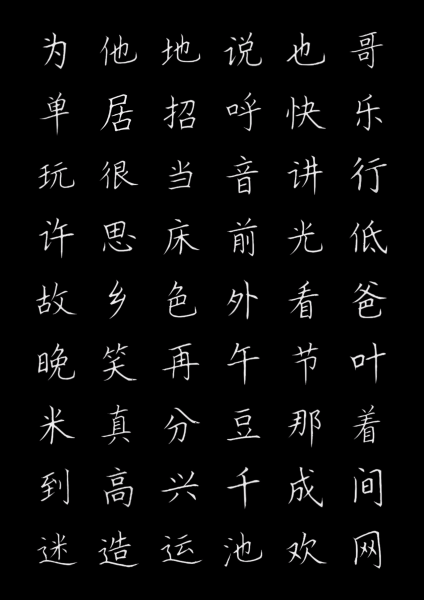 为他地说也哥
单居招呼快乐
玩很当音讲行
许思床前光低
故乡色外看爸
晚笑再午节叶
米真分豆那着
到高兴千成间
迷造运池欢网